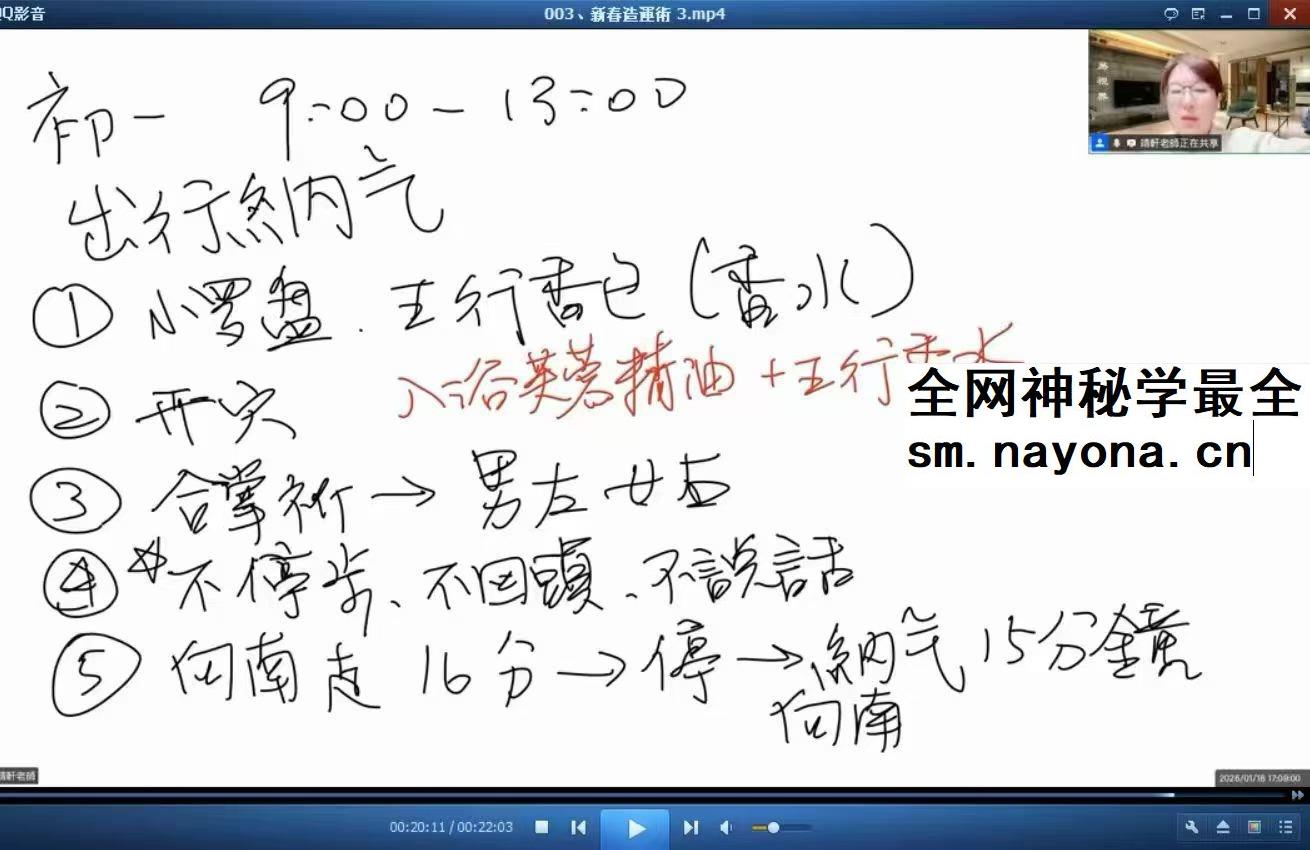 QQ影音
003、新春造運術 3.mp4
初一 9:00-13:00
靖軒老師正在共享
出行納气
① 小罗盘．五行香包(香水)
入谷芙蓉精油+五行香水
全网神秘学最全
② 开穴
sm.nayona.cn
③ 合掌祈→男左女右
④ *不停步、不回頭、不說話
⑤ 向南走 16分→停→納气 15分鐘
向南
靖軒老師
2026/01/18 17:09:00
00:20:11/00:22:03